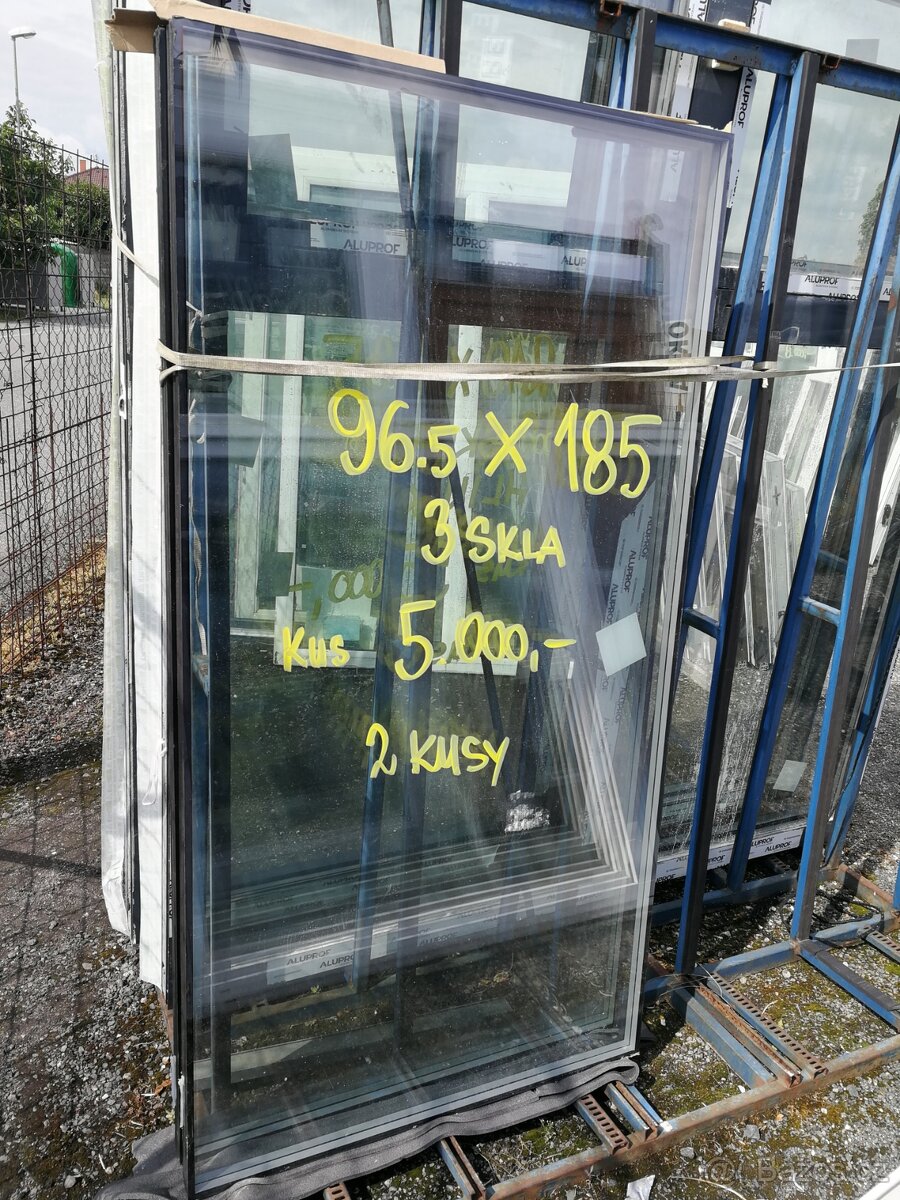 ALUPROF
ALUPROF
ALUPROF
ALUPROF
96.5 X 185
3 SKLA
ALUPROF
ALUPROF
Kus 5.000,-
2 KUSY
ALUPROF
ALUPROF
ALUPROF
Bazos.cz